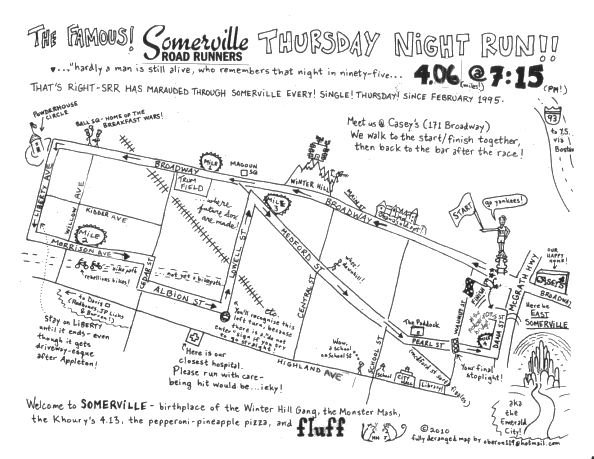 THE FAMOUS! Somerville ROAD RUNNERS THURSDAY NIGHT RUN!!
♥..."hardly a man is still alive, who remembers that night in ninety-five... 4.06 (miles!) @ 7:15 (PM!)
THAT'S RIGHT-SRR HAS MARAUDED THROUGH SOMERVILLE EVERY! SINGLE! THURSDAY! SINCE FEBRUARY 1995.
POWDERHOUSE
CIRCLE
BALL SQ-HOME OF THE
BREAKFAST WARS!
Meet us @ Casey's (171 Broadway)
We walk to the start/finish together,
then back to the bar after the race!
93
to Y.S.
via
Boston
BROADWAY
MILE
1
MAGOUN
SQ
TRUM
FIELD
WINTER HILL
BROADWAY
START
go yankees!
LIBERTY AVE
WILLOW AVE
KIDDER AVE
MILE
2
MORRISON AVE
...where
future sox
are made!
MILE
3
LOWELL ST
MEDFORD ST
CENTRAL ST
OUR
HAPPY
HOME!
CASEY'S
BROADWAY
MCGRATH HWY
FINISH
bike path
rebellious bikes!
CEDAR ST
not yet a bikepath
ALBION ST
etc
You'll recognise this
left turn, because
there is a do not
enter sign if you try
to go straight
Here be
EAST
SOMERVILLE
to Davis
(Redbones, JP Licks
& Boston)
STAY ON LIBERTY
until it ends- even
though it gets
driveway-esque
after Appleton!
The Paddock
PEARL ST
MARSHALL ST
DANA ST
Wow,
a school
on School St
SCHOOL ST
school
City
Library!
Your final
stoplight!
HIGHLAND AVE
Here is our
closest hospital.
Please run with care-
being hit would be...icky!
aka
the
Emerald
City!
Welcome to SOMERVILLE- birthplace of the Winter Hill Gang, the Monster Mash,
the Khoury's 4.13, the pepperoni-pineapple pizza, and fluff
©2010
fully deranged map by oberon119@hotmail.com